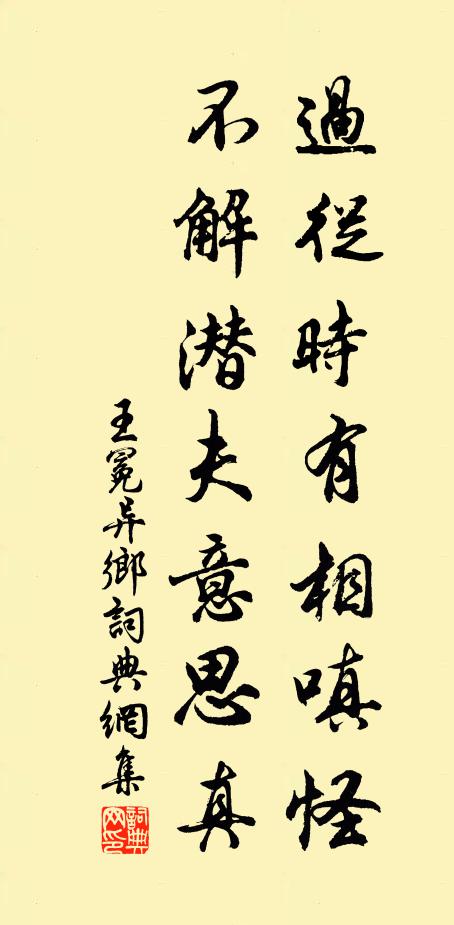 過從時有相嗔怪
不解潜夫意思真
王冕异鄉詞典網集
詞典網印